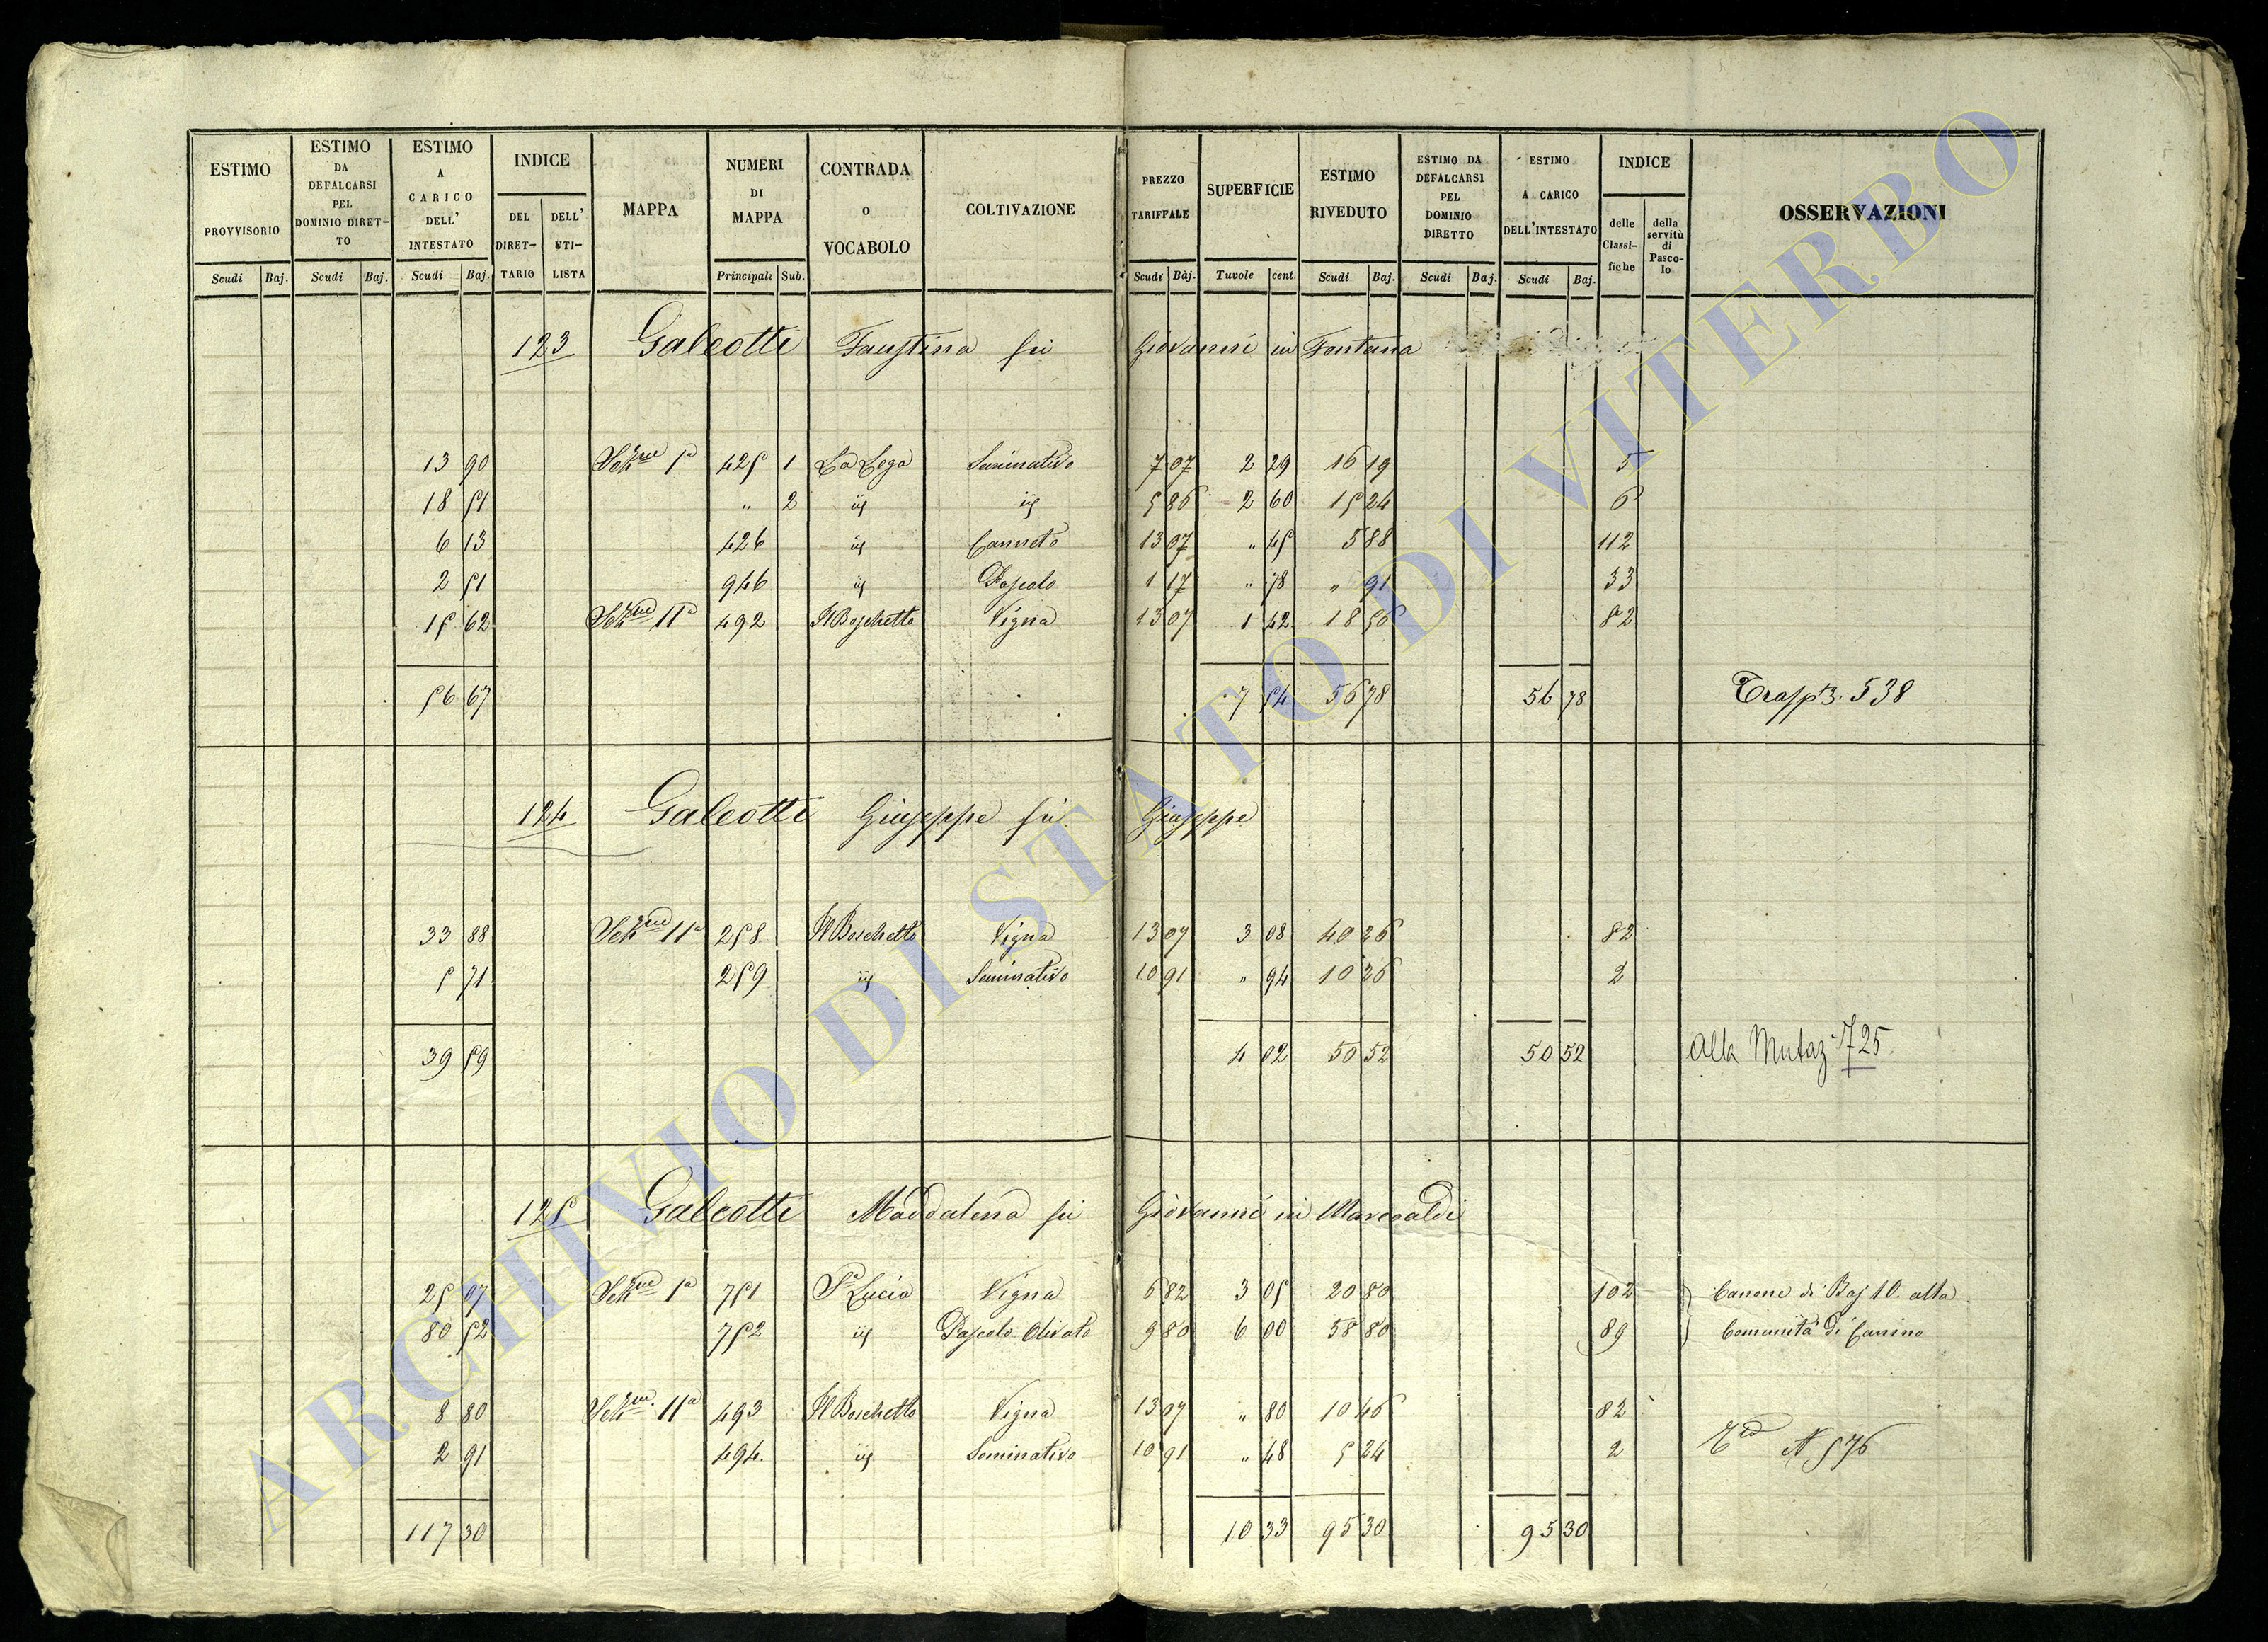 ESTIMO PROVVISORIO | ESTIMO DA DEFALCARSI PEL DOMINIO DIRETTO | ESTIMO A CARICO DELL' INTESTATO | INDICE DEL DIRETTARIO | DELL' UTILISTA | MAPPA | NUMERI DI MAPPA | CONTRADA O VOCABOLO | COLTIVAZIONE | PREZZO TARIFFALE | SUPERFICIE | ESTIMO RIVEDUTO | ESTIMO DA DEFALCARSI PEL DOMINIO DIRETTO | ESTIMO A CARICO DELL'INTESTATO | INDICE delle Classifiche | della servitù di Pascolo | OSSERVAZIONI
Scudi | Baj. | Scudi | Baj. | Scudi | Baj. | Principali | Sub. | Scudi | Baj. | Tavole | cent. | Scudi | Baj. | Scudi | Baj. | Scudi | Baj.
123 Galeotti Faustina fu Giovanni in Fontana
13 90 Sezne 1a 425 1 La Lega Seminativo 7 07 2 29 16 19 5
18 51 " 2 id id 5 86 2 60 15 24 6
6 13 426 id Canneto 13 07 " 45 5 88 112
2 51 946 id Pascolo 1 17 " 78 " 91 33
15 62 Sezne 11a 492 Il Boschetto Vigna 13 07 1 42 18 56 82
56 67 7 54 56 78 56 78 Trasp 3. 538
124 Galeotti Giuseppe fu Giuseppe
33 88 Sezne 11a 258 Il Boschetto Vigna 13 07 3 08 40 26 82
5 71 259 id Seminativo 10 91 " 94 10 26 2
39 59 4 02 50 52 50 52 Alla Mutaz 725
125 Galeotti Maddalena fu Giovanni in Maresaldi
25 07 Sezne 1a 751 Sa Lucia Vigna 6 82 3 05 20 80 102 Canone di Baj 10. alla
80 52 752 id Pascolo Olivato 9 80 6 00 58 80 89 Comunità di Canino
8 80 Sezne. 11a 493 Il Boschetto Vigna 13 07 " 80 10 46 82
2 91 494. id Seminativo 10 91 " 48 5 24 2 N 576
117 30 10 33 95 30 95 30
ARCHIVIO DI STATO DI VITERBO